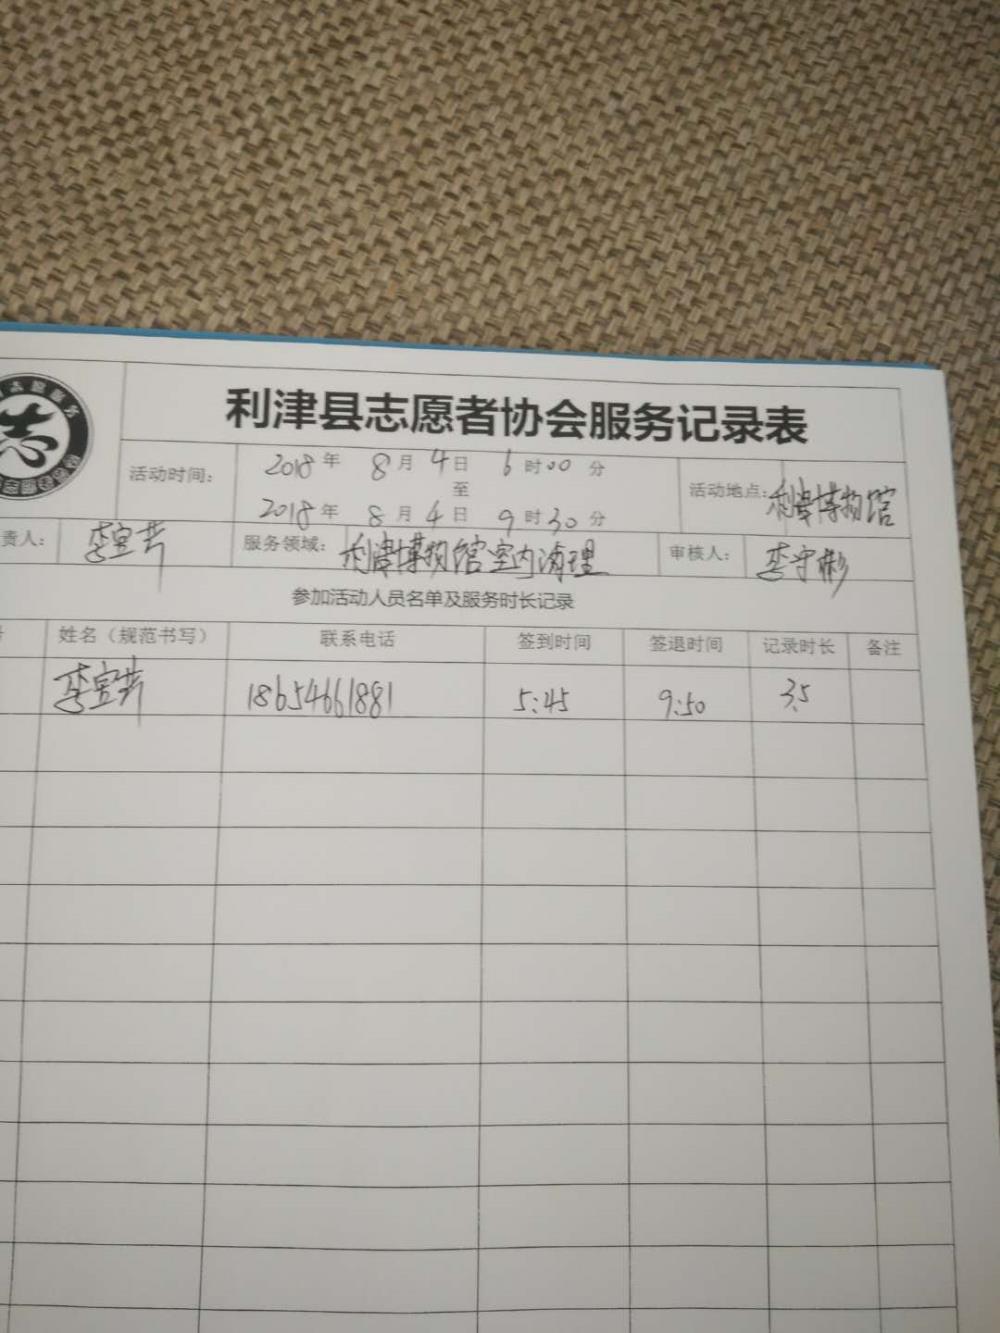 利津县志愿者协会服务记录表
活动时间: 2018年 8月 4日 6时00分
至
2018年 8月 4日 9时30分
活动地点: 利津博物馆
责人: 李宝芳
服务领域: 利津博物馆室内清理
审核人: 李守彬
参加活动人员名单及服务时长记录
姓名（规范书写） 联系电话 签到时间 签退时间 记录时长 备注
李宝芳 18654661881 5:45 9:50 3.5